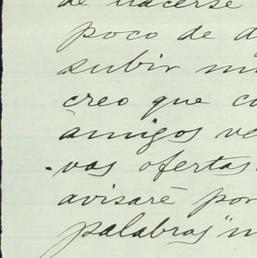 de hacerse
poco de d
subir m
creo que co
amigos ve
vas ofertas
avisaré por
palabras" m